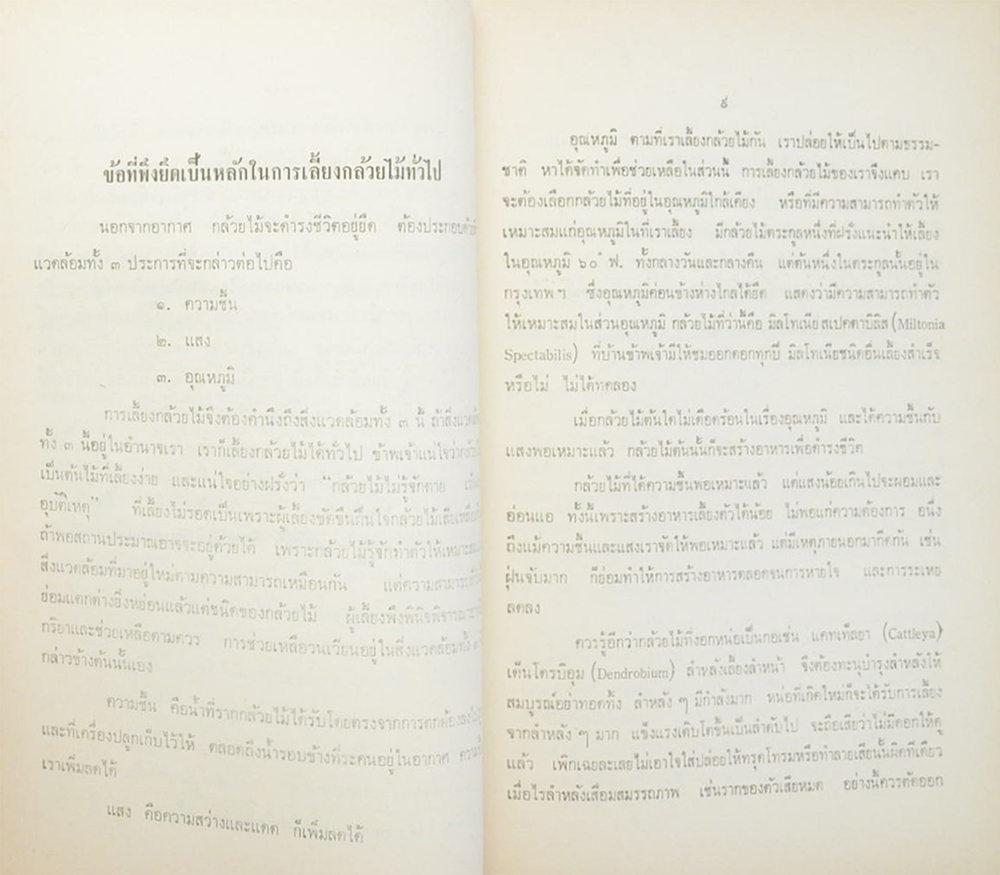 ข้อที่พึงยึดเป็นหลักในการเลี้ยงกล้วยไม้ทั่วไป
นอกจากอากาศ กล้วยไม้จะดำรงชีวิตอยู่ยืด ต้องประกอบด้วย
แวดล้อมทั้ง ๓ ประการที่จะกล่าวต่อไปคือ
๑. ความชื้น
๒. แสง
๓. อุณหภูมิ
การเลี้ยงกล้วยไม้จึงต้องคำนึงถึงสิ่งแวดล้อมทั้ง ๓ นี้ ถ้าสิ่งแวดล้อม
ทั้ง ๓ นี้อยู่ในอำนาจเรา เราก็เลี้ยงกล้วยไม้ได้ทั่วไป ข้าพเจ้าแน่ใจว่า
เป็นต้นไม้ที่เลี้ยงง่าย และแน่ใจอย่างฝรั่งว่า "กล้วยไม้ไม่รู้จักตาย เว้น
อุบัติเหตุ" ที่เลี้ยงไม่รอดเป็นเพราะผู้เลี้ยงขัดขืนฝืนใจกล้วยไม้เสีย
ถ้าพอสถานประมาณอาจจะอยู่ด้วยได้ เพราะกล้วยไม้รู้จักทำตัวให้เหมาะ
สิ่งแวดล้อมที่มาอยู่ใหม่ตามความสามารถเหมือนกัน แต่ความสามารถ
ย่อมแตกต่างยิ่งหย่อนแล้วแต่ชนิดของกล้วยไม้ ผู้เลี้ยงพึงพินิจพิจารณา
กริยาและช่วยเหลือตามควร การช่วยเหลือวนเวียนอยู่ในสิ่งแวดล้อมทั้ง ๓
กล่าวข้างต้นนั้นเอง
ความชื้น คือน้ำที่รากกล้วยไม้ได้รับโดยตรงจากการรดต้อง
และที่เครื่องปลูกเก็บไว้ให้ ตลอดถึงน้ำรอบข้างที่ระคนอยู่ในอากาศ ความ
เราเพิ่มลดได้
แสง คือความสว่างและแดด ก็เพิ่มลดได้
๙
อุณหภูมิ ตามที่เราเลี้ยงกล้วยไม้กัน เราปล่อยให้เป็นไปตามธรรม-
ชาติ หาได้จัดทำเพื่อช่วยเหลือในส่วนนี้ การเลี้ยงกล้วยไม้ของเราจึงแคบ เรา
จะต้องเลือกกล้วยไม้ที่อยู่ในอุณหภูมิใกล้เคียง หรือที่มีความสามารถทำตัวให้
เหมาะสมแก่อุณหภูมิในที่เราเลี้ยง มีกล้วยไม้ตระกูลหนึ่งที่ฝรั่งแนะนำให้เลี้ยง
ในอุณหภูมิ ๖๐° ฟ. ทั้งกลางวันและกลางคืน แต่ต้นหนึ่งในตระกูลนั้นอยู่ใน
กรุงเทพฯ ซึ่งอุณหภูมิค่อนข้างห่างไกลได้ยืด แสดงว่ามีความสามารถทำตัว
ให้เหมาะสมในส่วนอุณหภูมิ กล้วยไม้ที่ว่านี้คือ มิลโทเนียสเปคตาบิลิส (Miltonia
Spectabilis) ที่บ้านข้าพเจ้ามีให้ชมออกดอกทุกปี มิลโทเนียชนิดอื่นเลี้ยงสำเร็จ
หรือไม่ ไม่ได้ทดลอง
เมื่อกล้วยไม้ต้นใดไม่เดือดร้อนในเรื่องอุณหภูมิ และได้ความชื้นกับ
แสงพอเหมาะแล้ว กล้วยไม้ต้นนั้นก็จะสร้างอาหารเพื่อดำรงชีวิต
กล้วยไม้ที่ได้ความชื้นพอเหมาะแล้ว แต่แสงน้อยเกินไปจะผอมและ
อ่อนแอ ทั้งนี้เพราะสร้างอาหารเลี้ยงตัวได้น้อย ไม่พอแก่ความต้องการ อนึ่ง
ถึงแม้ความชื้นและแสงเราจัดให้พอเหมาะแล้ว แต่มีเหตุภายนอกมากีดกัน เช่น
ฝุ่นจับมาก ก็ย่อมทำให้การสร้างอาหารตลอดจนการหายใจ และการระเหย
ลดลง
ควรรู้อีกว่ากล้วยไม้ที่งอกหน่อเป็นกอเช่น แคทเทิ้ลยา (Cattleya)
เด็นโดรบิอุม (Dendrobium) ลำหลังเลี้ยงลำหน้า จึงต้องทะนุบำรุงลำหลังให้
สมบูรณ์อย่าทอดทิ้ง ลำหลัง ๆ มีกำลังมาก หน่อที่เกิดใหม่ก็จะได้รับการเลี้ยง
จากลำหลัง ๆ มาก แข็งแรงเติบโตขึ้นเป็นลำดับไป จะถือเสียว่าไม่มีดอกให้ดู
แล้ว เพิกเฉยละเลยไม่เอาใจใส่ปล่อยให้ทรุดโทรมหรือทำลายเสียนั้นผิดทีเดียว
เมื่อไรลำหลังเสื่อมสมรรถภาพ เช่นรากของตัวเสียหมด อย่างนี้ควรตัดออก